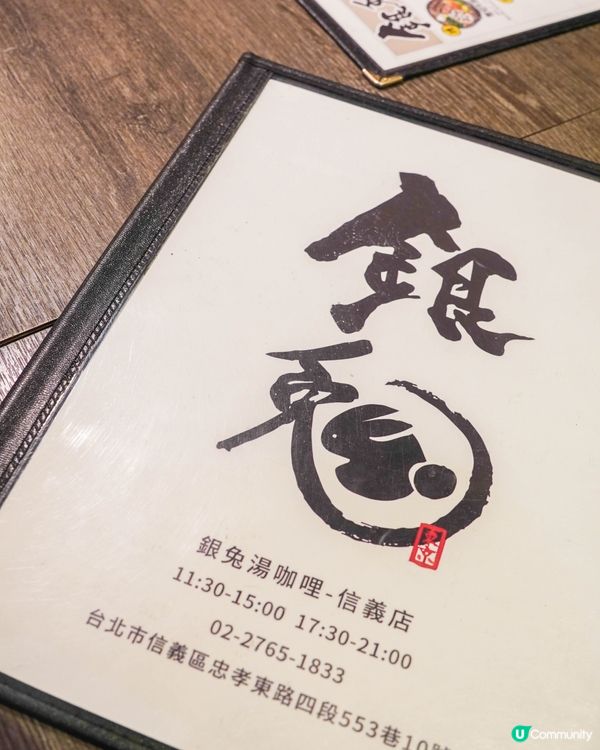 銀
兔
東京
銀兔湯咖哩-信義店
11:30-15:00 17:30-21:00
02-2765-1833
台北市信義區忠孝東路四段553巷10號
U Community